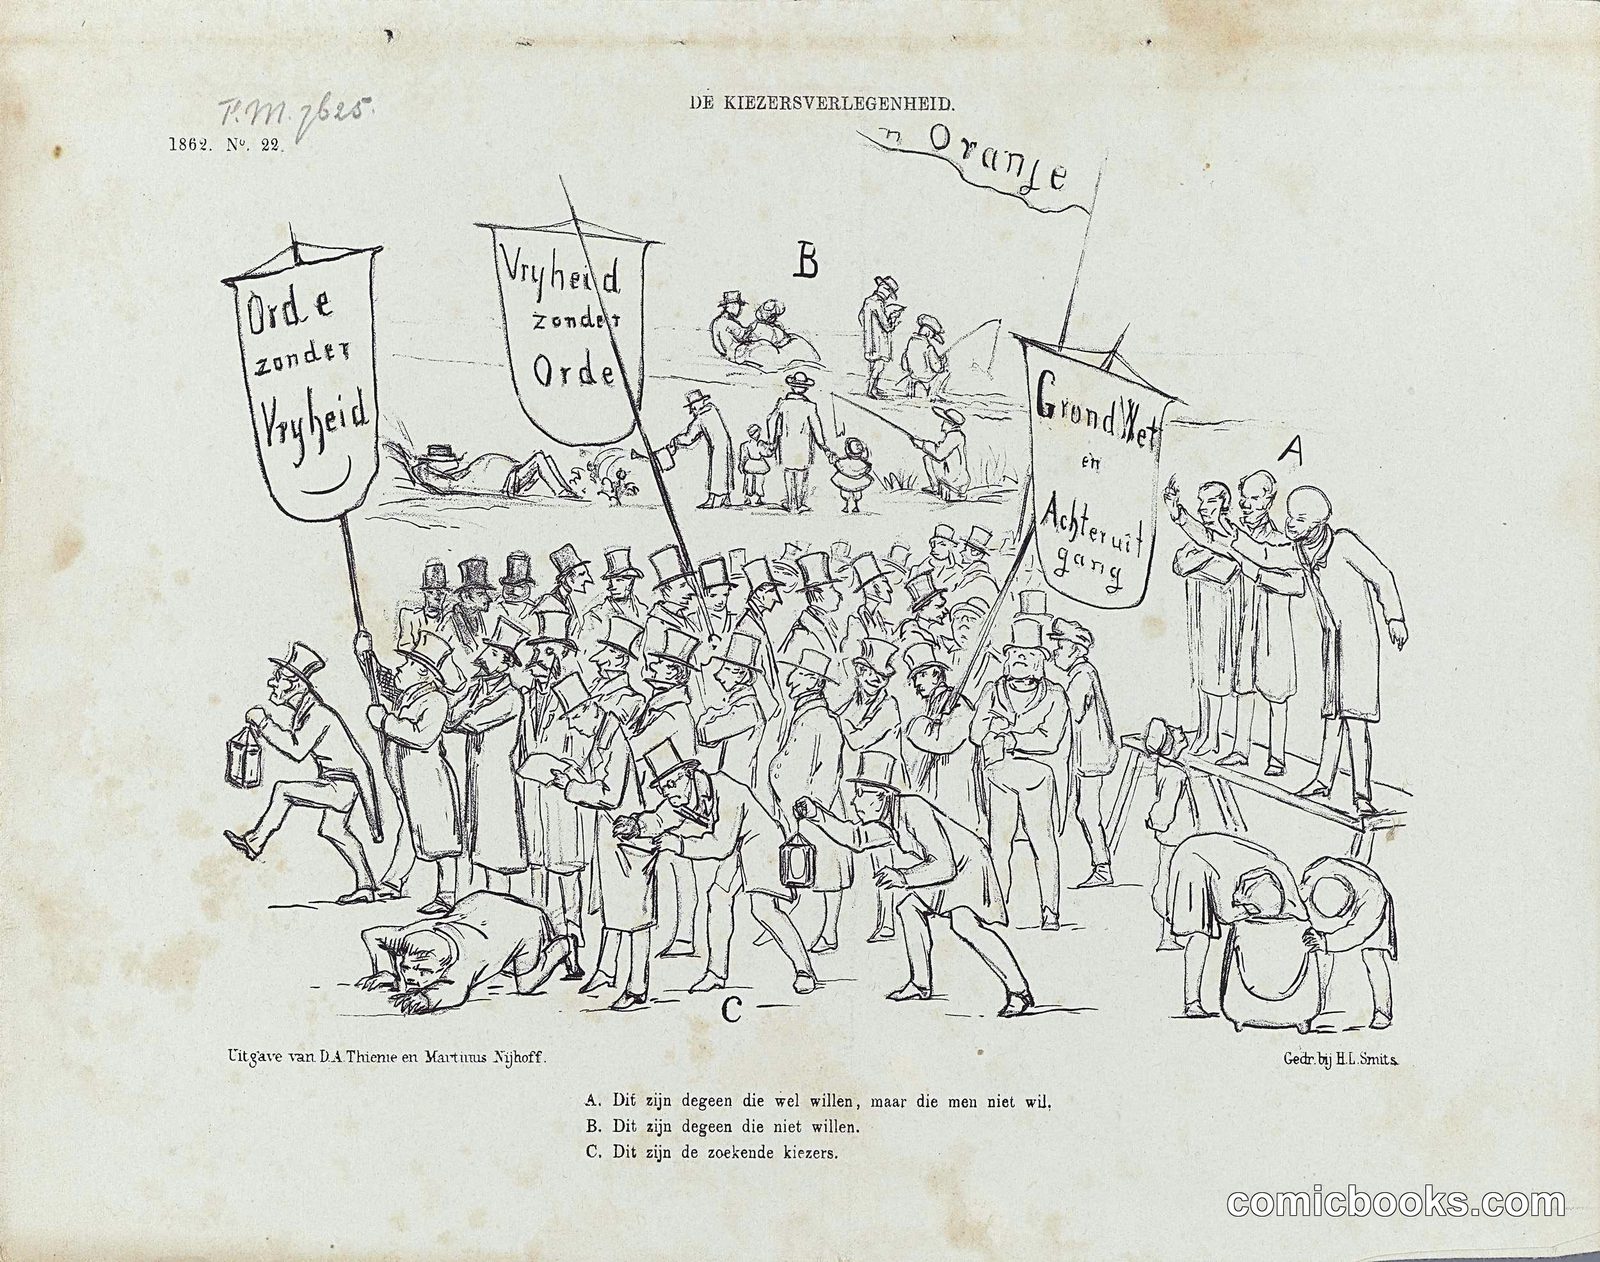 DE KIEZERSVERLEGENHEID.
1862. No. 22.
'n Oranje
B
Orde
zonder
Vryheid
Vryheid
zonder
Orde
GrondWet
en
Achteruit
gang
A
C
Uitgave van D.A. Thieme en Martinus Nijhoff.
Gedr. bij H.L. Smits.
A. Dit zijn degeen die wel willen, maar die men niet wil.
B. Dit zijn degeen die niet willen.
C. Dit zijn de zoekende kiezers.
comicbooks.com